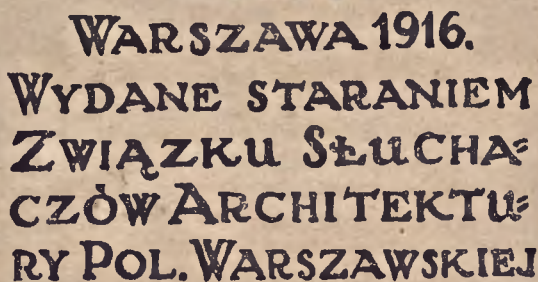 WARSZAWA 1916.
WYDANE STARANIEM
ZWIĄZKU SŁUCHA=
CZÓW ARCHITEKTU=
RY POL. WARSZAWSKIEJ